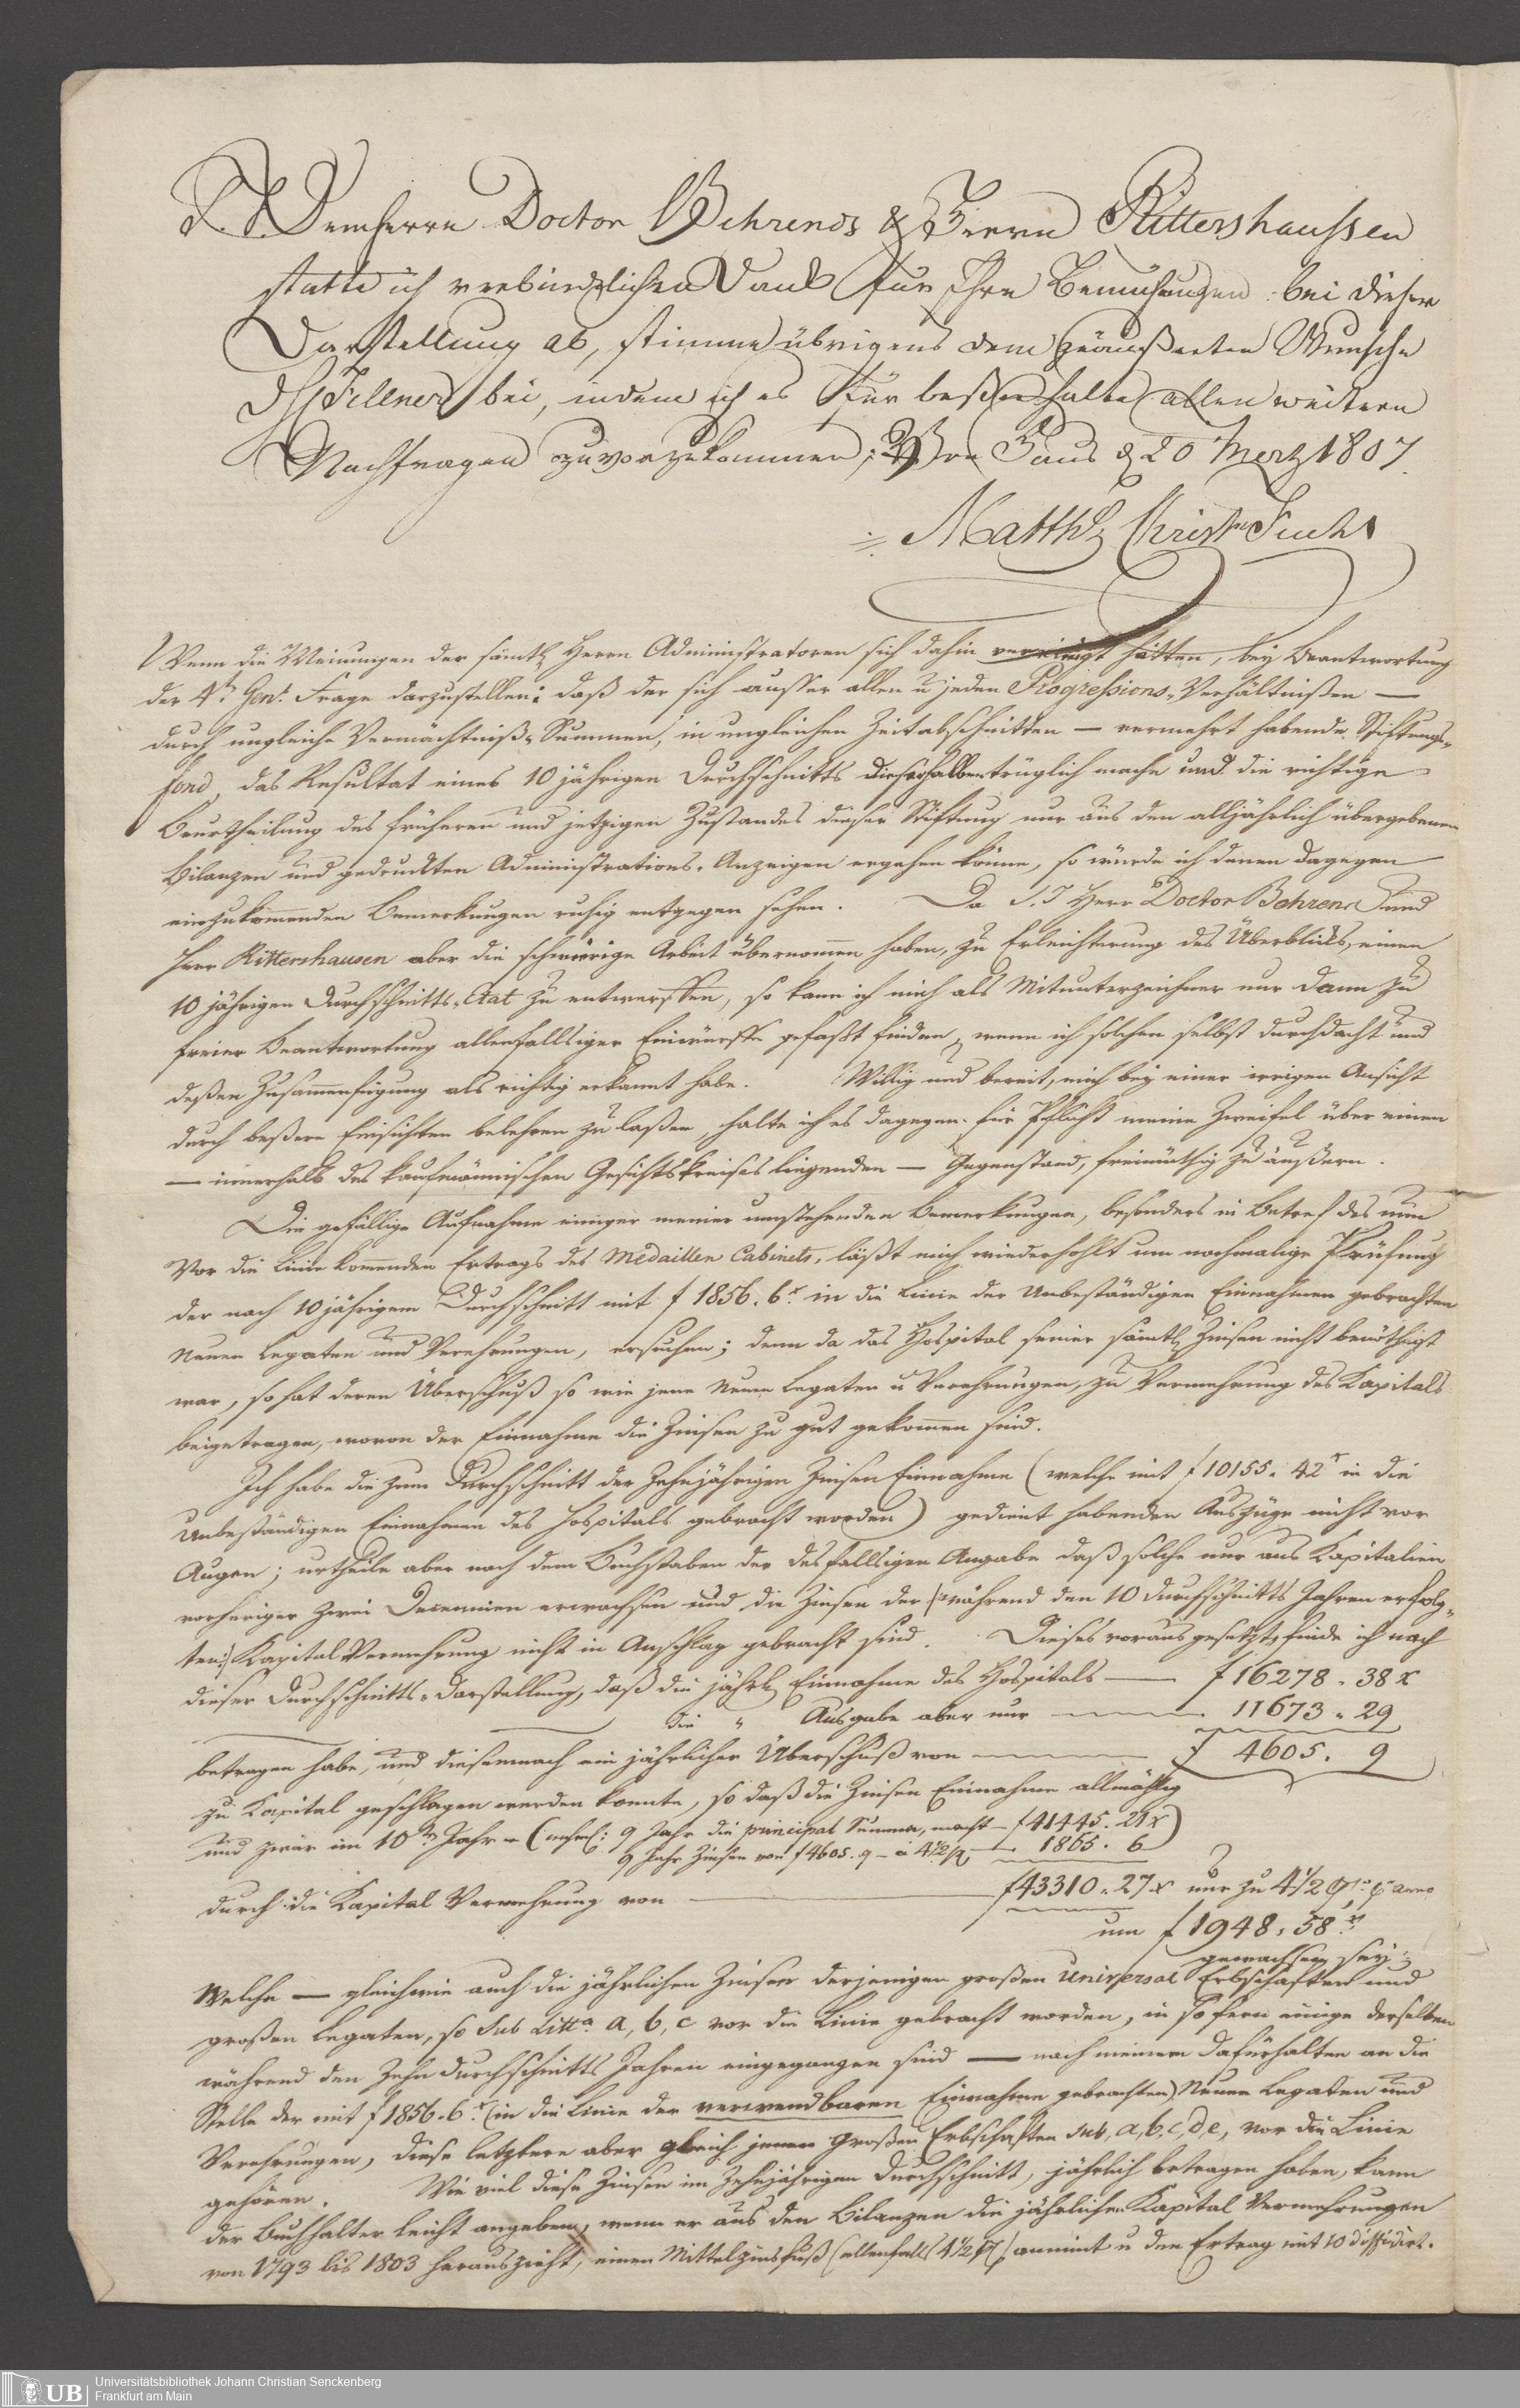 S. T. Dem Herrn Doctor Behrends & Herrn Rittershaussen
statte ich verbindlichen Dank für Ihre Bemühungen bei dieser
Darstellung ab, stimme übrigens dem geäußerten Wunsche
Fellner bei, indem ich es für beßer halte allen weitern
Nachfragen zuvorzukommen; Von Haus d 20 Merz 1807.
Matths Christn Fuchs
Wenn die Meinungen der sämtl Herrn Administratoren sich dahin vereinigt hätten, bey Beantwortung
der 4tn Gen! Frage darzustellen: daß der sich ausser allen u jeden Progressions-Verhältnißen —
durch ungleiche Vermächtniß-Summen, in ungleichen Zeitabschnitten — vermehrt habende Stiftungs-
fond, das Resultat eines 10 jährigen Durchschnitts dieserhalben trüglich mache und die richtige
Beurtheilung des früheren und jetzigen Zustandes dieser Stiftung nur aus den alljährlich übergebenen
Bilanzen und gedruckten Administrations-Anzeigen ergehen könne, so würde ich denen dagegen
einzukommenden Bemerkungen ruhig entgegen sehen. Da S. T Herr Doctor Behrens und
Herr Rittershausen aber die schwürige Arbeit übernommen haben, zu Erleichterung des Überblicks, einen
10 jährigen Durchschnitts-Etat zu entwerffen, so kann ich mich als Mitunterzeichner nur dann zu
freier Beantwortung allenfallsiger Einwürffe gefaßt finden, wenn ich solchen selbst durchdacht und
deßen Zusammenfügung als richtig erkannt habe. Willig und bereit, mich bey einer irrigen Ansicht
durch beßere Einsichten belehren zu laßen, halte ich es dagegen für Pflicht meine Zweifel über einen
— innerhalb des kaufmännischen Gesichtskreises liegenden — Gegenstand, freimüthig zu äußern.
Die gefällige Aufnahme einiger meiner umstehenden Bemerkungen, besonders in Betref des nun
Vor die Linie kommenden Ertrags des Medaillen Cabinets, läßt mich wiederhohlt um nochmalige Prüfung
der nach 10 jährigem Durchschnitt mit f 1856. 6x. in die Linie der Unbeständigen Einnahmen gebrachten
Neuen Legaten und Verehrungen, ersuchen; denn da das Hospital seiner sämtl Zinsen nicht benöthigt
war, so hat deren Überschuß so wie jene Neuen Legaten u Verehrungen, zu Vermehrung des Kapitals
beigetragen, wovon der Einnahme die Zinsen zu gut gekommen sind.
Ich habe die zum Durchschnitt der Zehnjährigen Zinsen Einnahme (welche mit f 10155. 42x in die
Unbeständigen Einnahmen des Hospitals gebracht worden) gedient habenden Auszüge nicht vor
Augen; urtheile aber nach dem Buchstaben der desfallsigen Angabe daß solche nur aus Kapitalien
vorheriger zwei Decennien erwachsen und die Zinsen der (während den 10 Durchschnitts Jahren erfolg-
ten) Kapital Vermehrung nicht in Anschlag gebracht sind. Dieses voraus gesetzt, finde ich nach
dieser Durchschnitts-Darstellung, daß die jährl Einnahme des Hospitals — f 16278. 38 x
die " Ausgabe aber nur — 11673. 29
betragen habe, und diesemnach ein jährlicher Überschuß von — f 4605. 9
zu Kapital geschlagen werden konnte, so daß die Zinsen Einnahme allmählig
und zwar im 10tn Jahr (nehml: 9 Jahr die principal Summa, macht — f 41445. 21x)
9 Jahr Zinsen von f 4605. 9 — à 4 1/2 — 1865. 6
durch die Kapital Vermehrung von — f 43310. 27x nur zu 4 1/2 pr anno
um f 1948. 58x
gewachsen sey:
Welche — gleichwie auch die jährlichen Zinsen derjenigen großen Universal Erbschaften und
großen Legaten, so sub Litta a, b, c vor die Linie gebracht worden, in so fern einige derselben
während den Zehn Durchschnitts Jahren eingegangen sind — nach meinem Dafürhalten an die
Stelle der mit f 1856. 6x (in die Linie der verwendbaren Einnahme gebrachten) Neuen Legaten und
Verehrungen, diese letztere aber gleich jenen großen Erbschaften sub, a, b, c, d, e, vor die Linie
gehören. Wie viel diese Zinsen im Zehnjährigen Durchschnitt, jährlich betragen haben, kann
der Buchhalter leicht angeben, wenn er aus den Bilanzen die jährlichen Kapital Vermehrungen
von 1793 bis 1803 herauszieht, einen Mittelzinsfuß (allenfalls 4 1/2) annimt u den Ertrag mit 10 diffidirt.
UB
Universitätsbibliothek Johann Christian Senckenberg
Frankfurt am Main